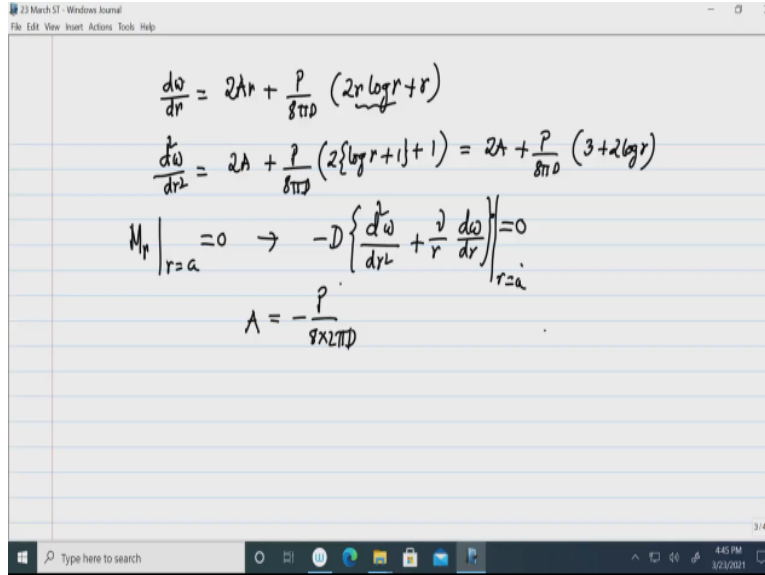 23 March ST - Windows Journal
File Edit View Insert Actions Tools Help
dω/dr = 2Ar + P/8πD (2r log r + r)
d²ω/dr² = 2A + P/8πD (2{log r + 1} + 1) = 2A + P/8πD (3 + 2 log r)
Mr|r=a = 0 → -D{d²ω/dr² + ν/r dω/dr}|r=a = 0
A = - P/8×2πD
3/4
Type here to search
4:45 PM
3/23/2021